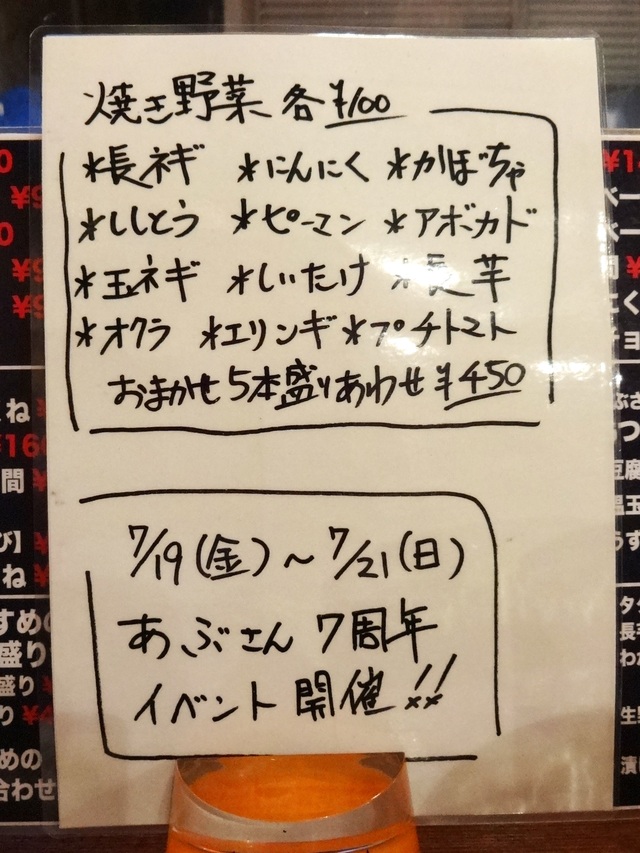 焼き野菜 各¥100
*長ネギ *にんにく *かぼちゃ
*ししとう *ピーマン *アボカド
*玉ネギ *しいたけ *長芋
*オクラ *エリンギ *プチトマト
おまかせ5本盛りあわせ ¥450
7/19(金)~7/21(日)
あぶさん 7周年
イベント 開催!!